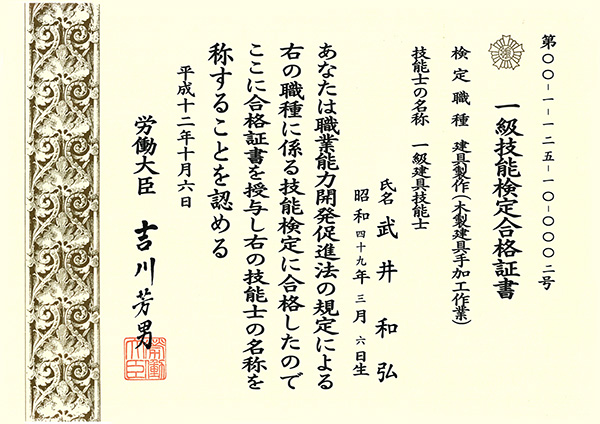 第〇〇-一-一二五-一〇-〇〇〇二号
一級技能検定合格証書
検定職種 建具製作(木製建具手加工作業)
技能士の名称 一級建具技能士
氏名 武井和弘
昭和四十九年三月六日生
あなたは職業能力開発促進法の規定による
右の職種に係る技能検定に合格したので
ここに合格証書を授与し右の技能士の名称を
称することを認める
平成十二年十月六日
労働大臣 吉川芳男
労働大臣